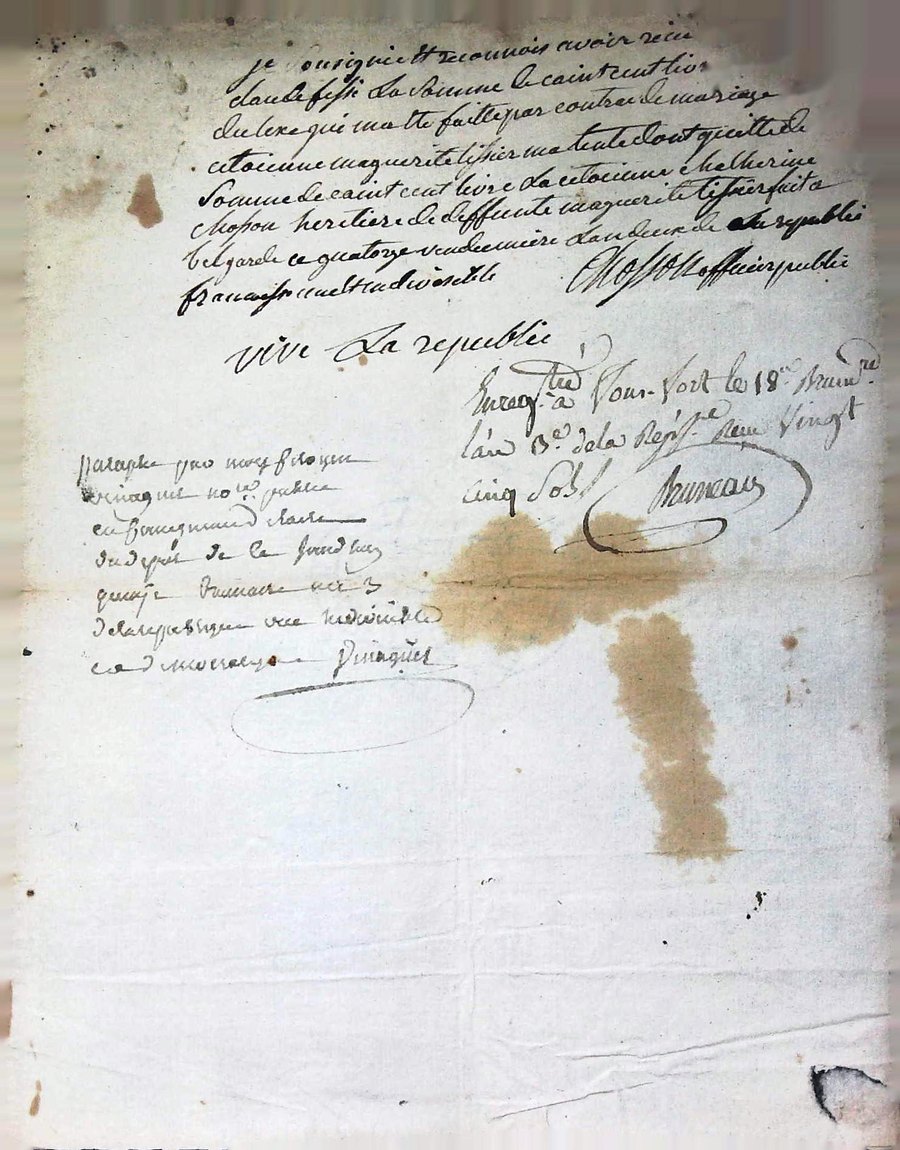 je sousigne et reconnois avoir recu
claude fessi La Somme de caint cent livr
du lexe qui ma tte faitte par contra de mariage
citoienne maguerite tissier ma tente dont quitte de
Somme de caint cent livre La citoienne chatherine
chosson heritiere de deffunte maguerite tissier fait a
belgarde ce quatorze vendiemiere Lan deux de La republi
francaisse une et indivissible Chosson officier public
vive La republic
Enreg.tré à Vour-Vort le 18e Brum.re
l'an 3e de la Rép. Reçu Vingt
cinq Sols Bruneau
paraphé par moy citoyen
vinaguet no.re public
du depost de
brumaire 3
de la republique une indivisible
et democratique Vinaguet